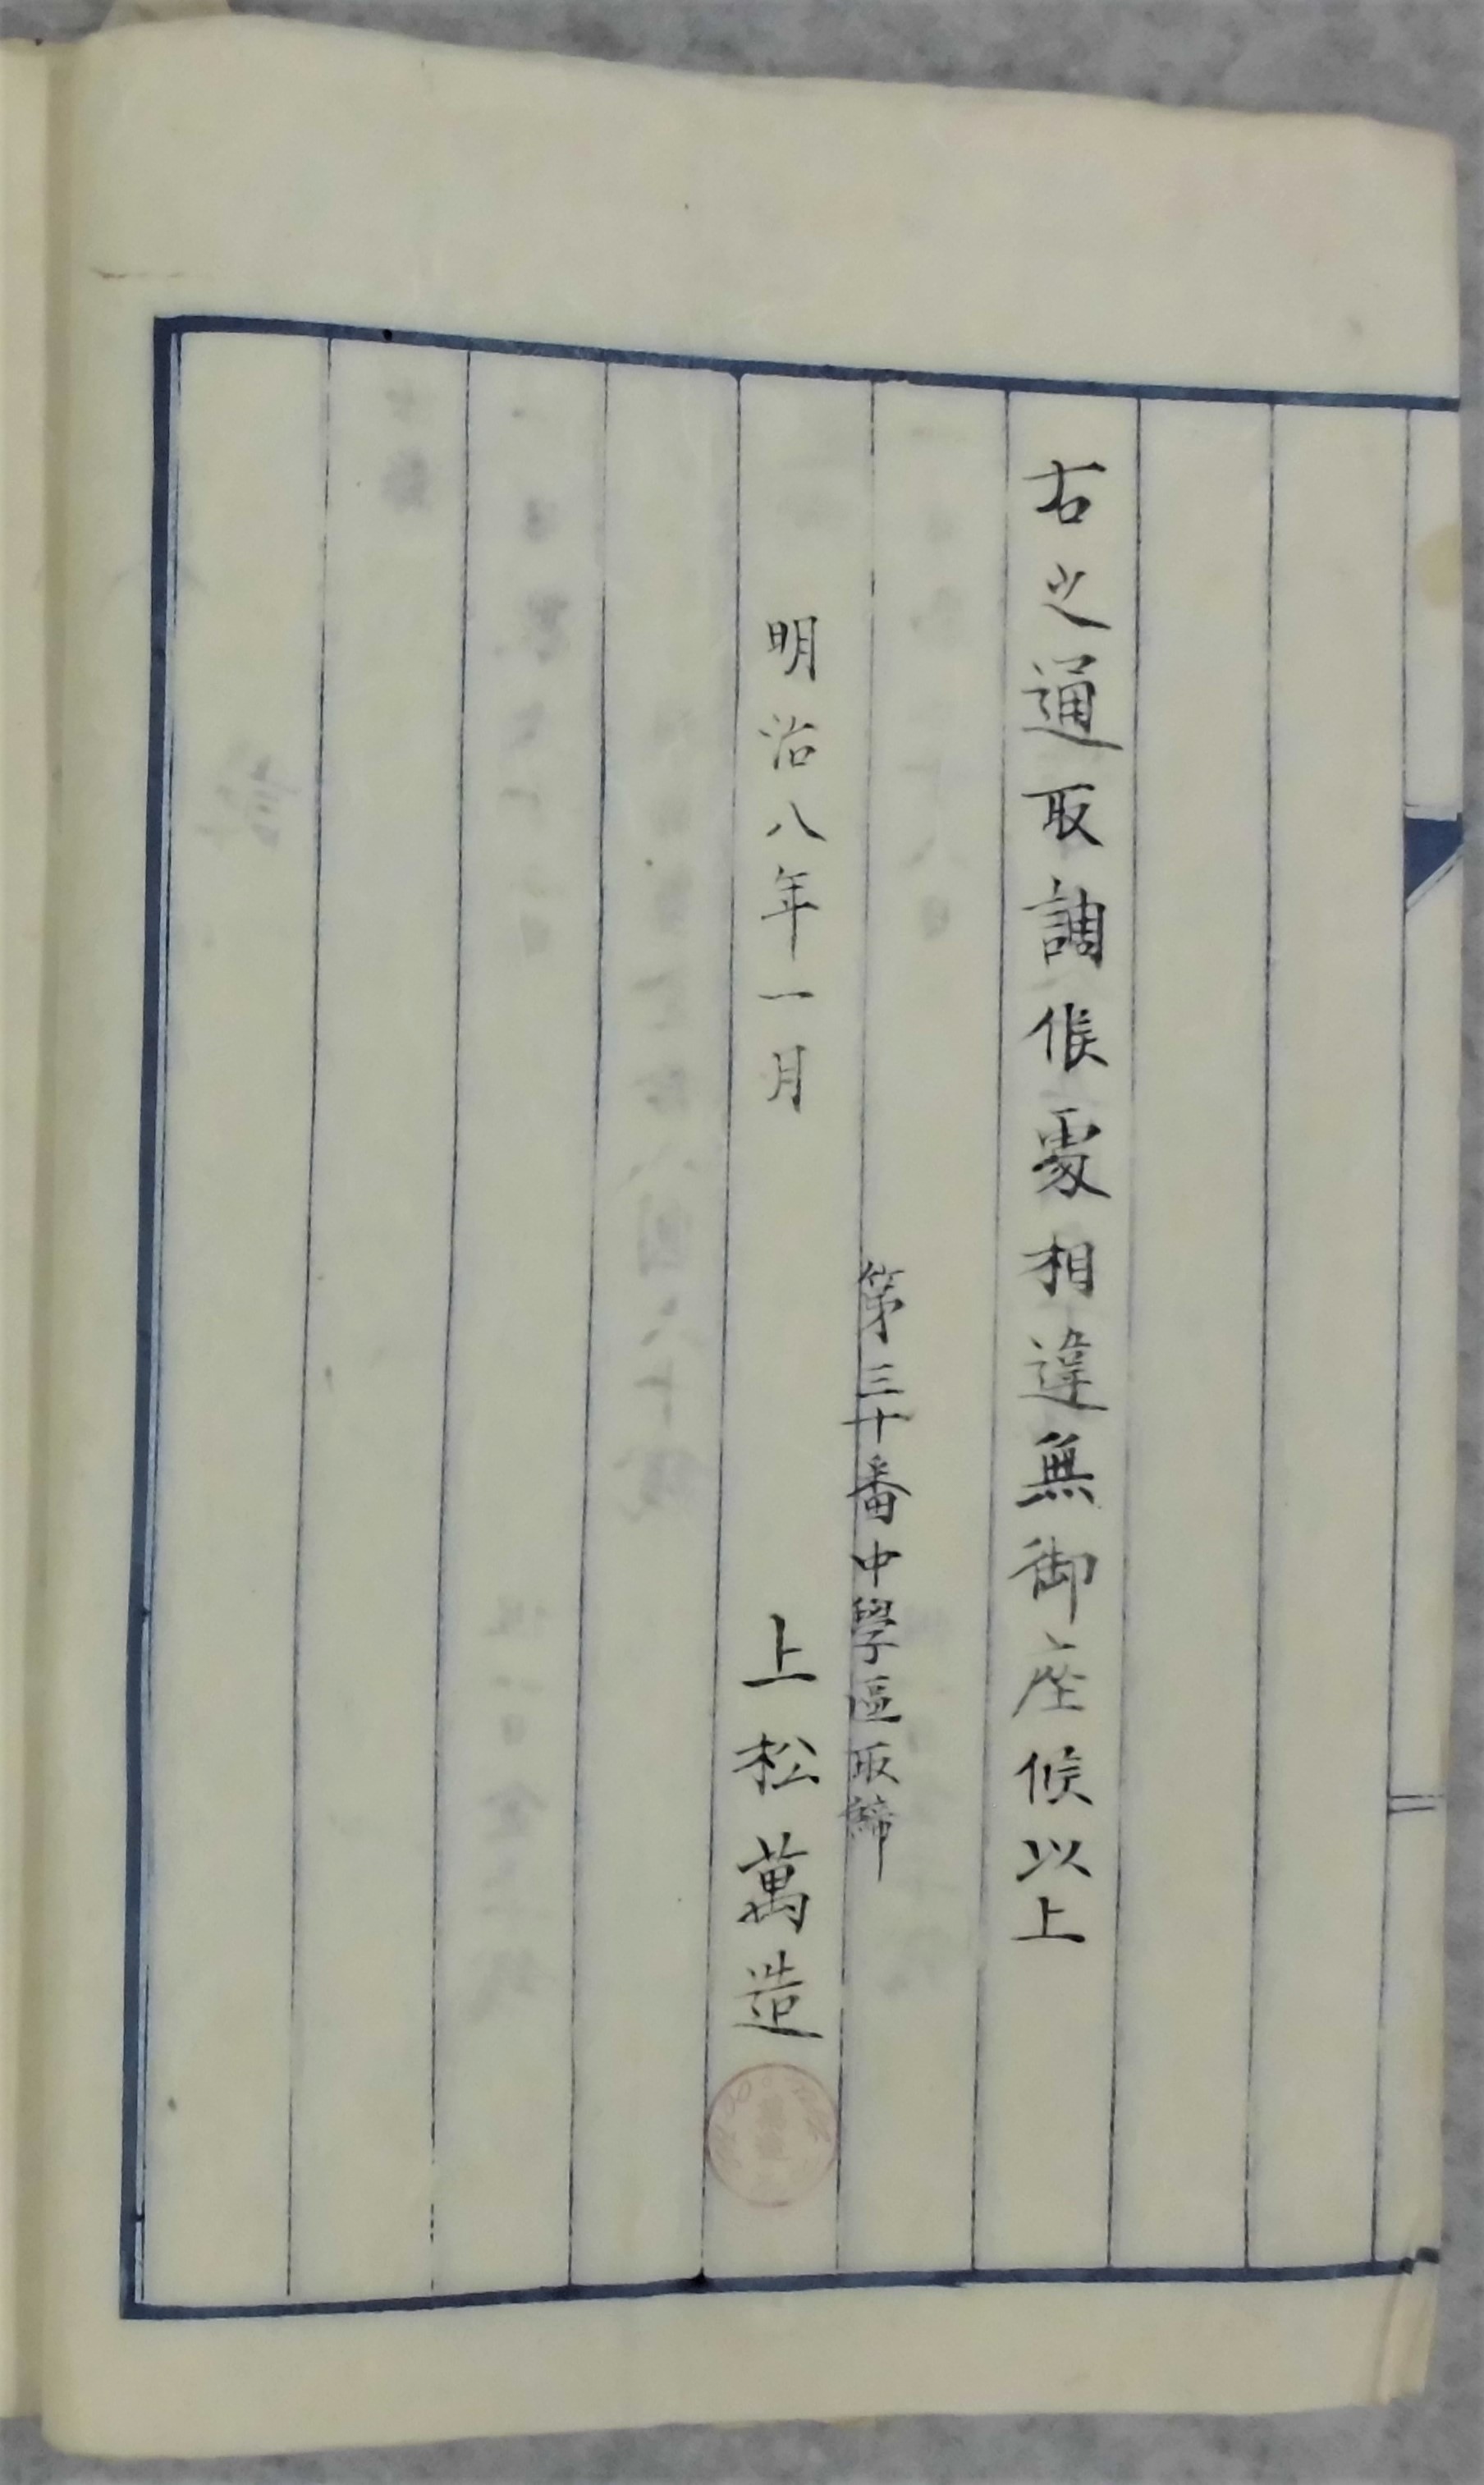 右之通取調候處相違無御座候以上
第三十番中學區取締
明治八年一月
上松萬造